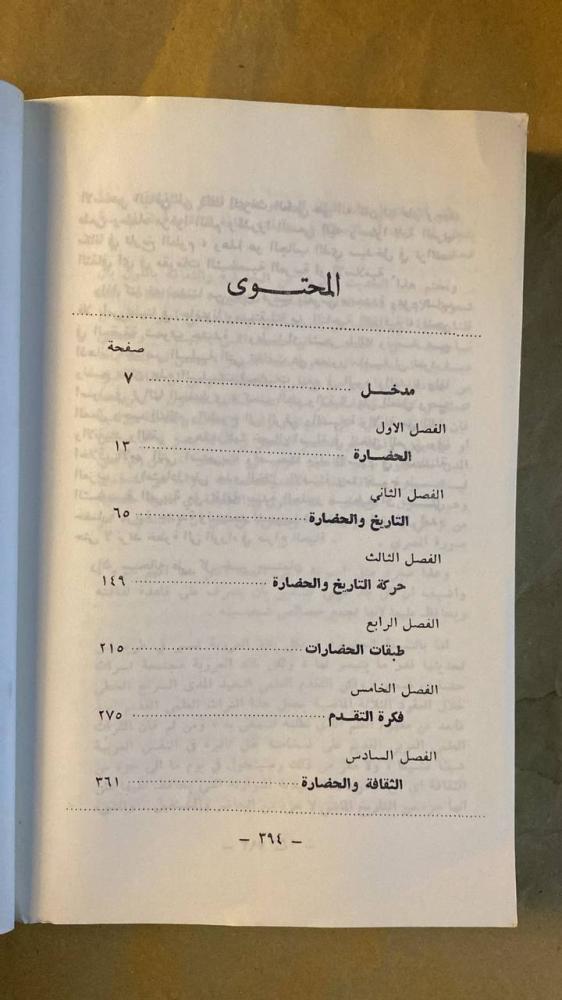 المحتوى
صفحة
مدخل ٧
الفصل الاول
الحضارة ١٣
الفصل الثاني
التاريخ والحضارة ٦٥
الفصل الثالث
حركة التاريخ والحضارة ١٤٩
الفصل الرابع
طبقات الحضارات ٢١٥
الفصل الخامس
فكرة التقدم ٢٧٥
الفصل السادس
الثقافة والحضارة ٣٦١
— ٣٩٤ —